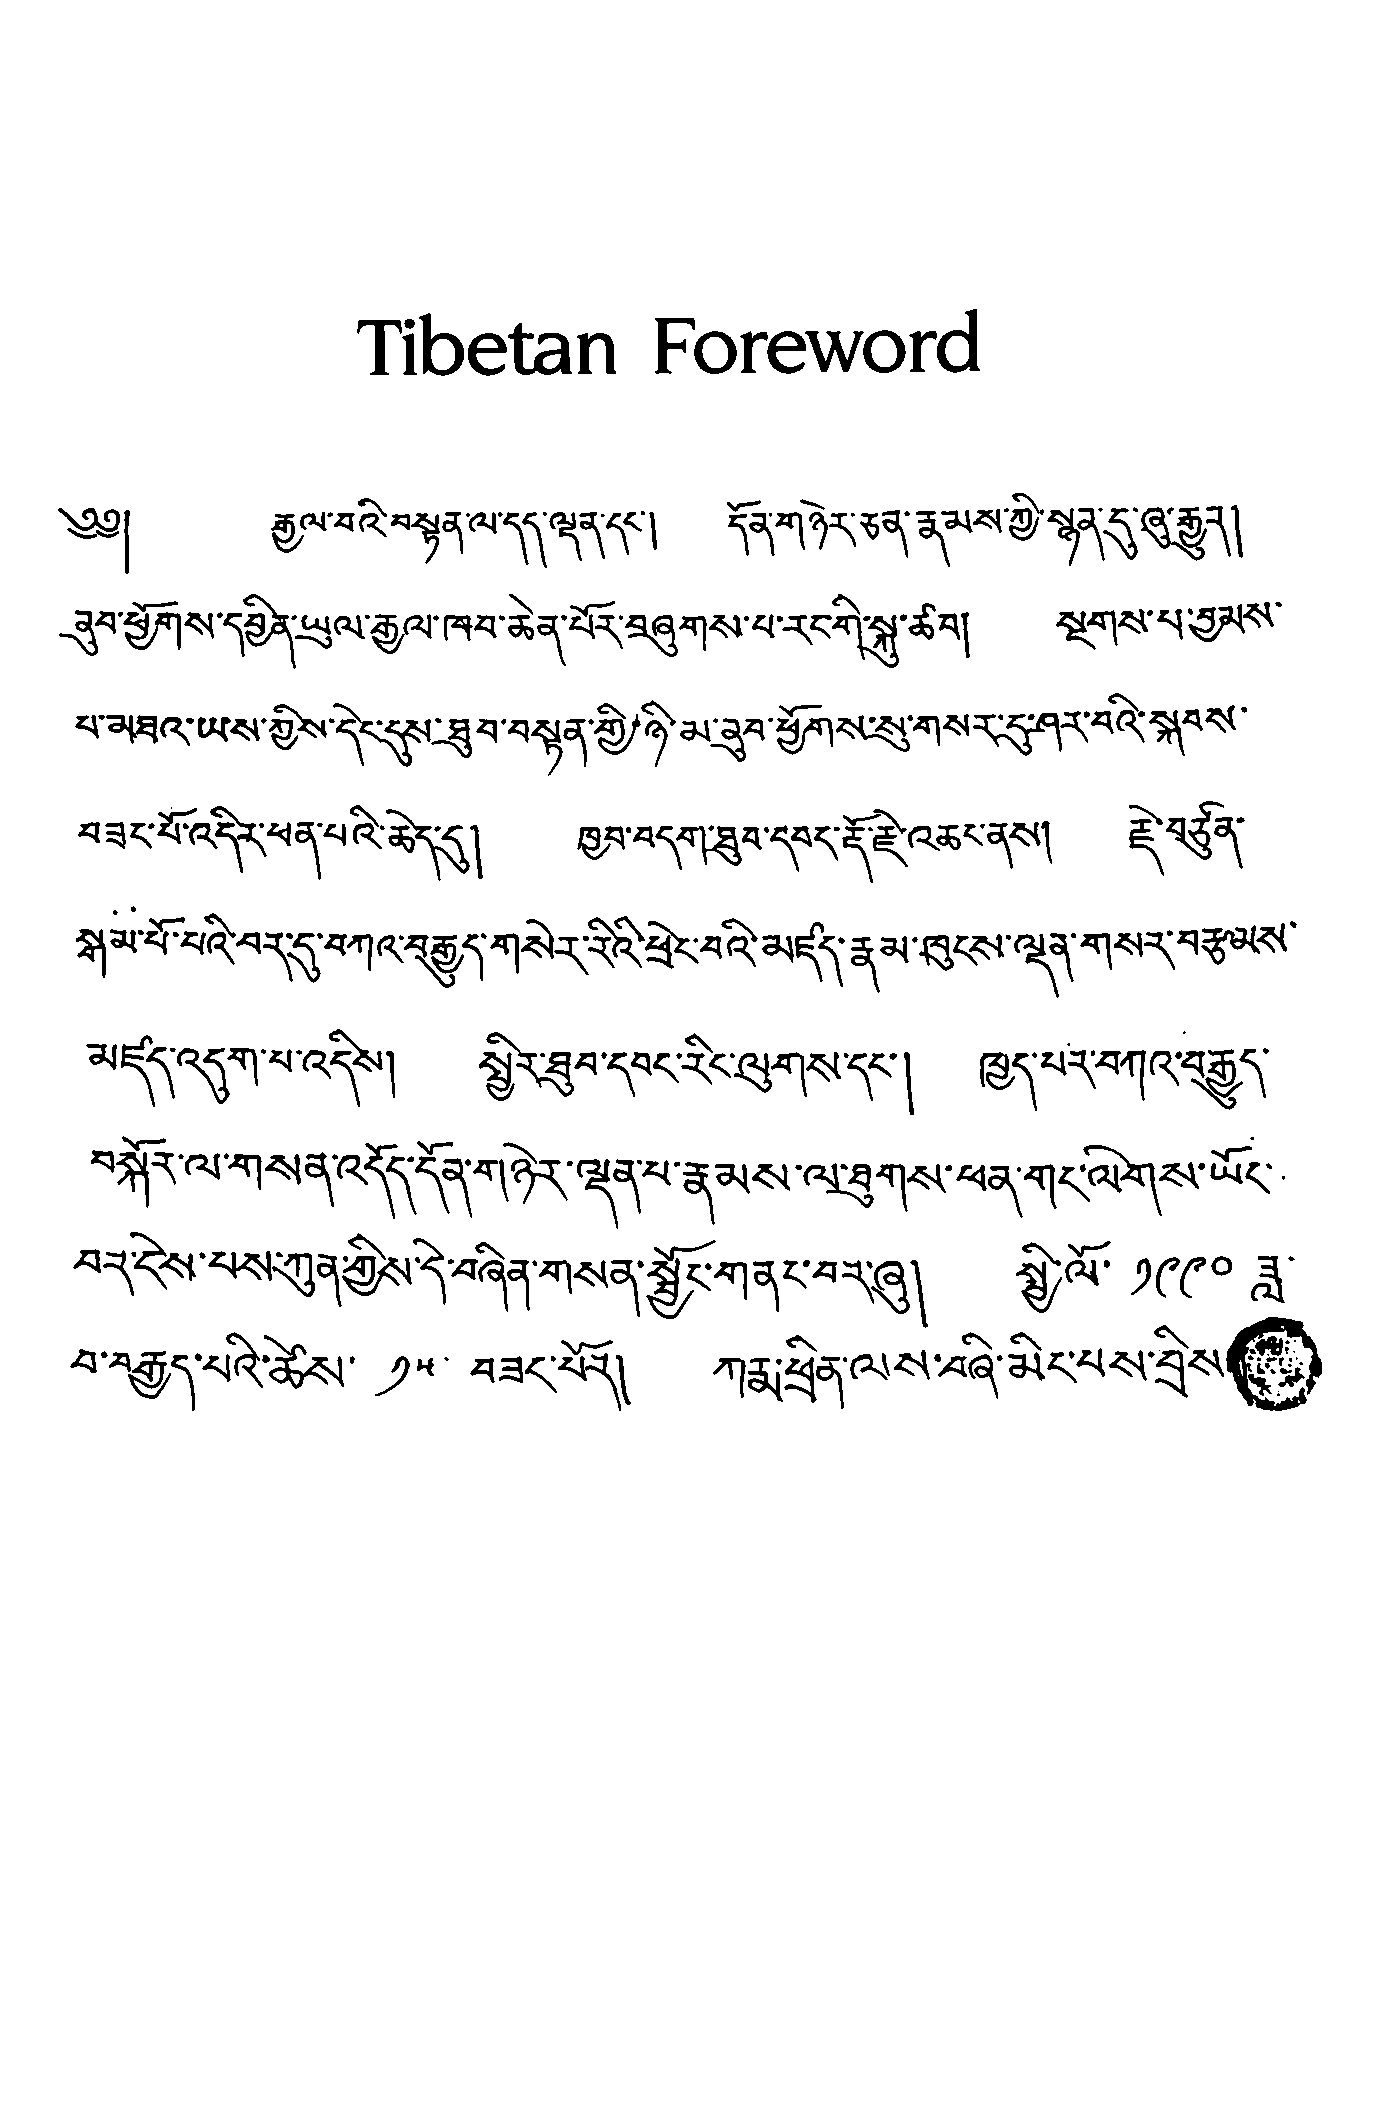 Tibetan Foreword
༄༅། རྒྱལ་བའི་བསྟན་ལ་དད་ལྡན་དང་། དོན་གཉེར་ཅན་རྣམས་ཀྱི་སྙན་དུ་ཞུ་རྒྱུར།
ནུབ་ཕྱོགས་དབྱིན་ཡུལ་རྒྱལ་ཁབ་ཆེན་པོར་བཞུགས་པ་རང་གི་སྐུ་ཚབ། སྔགས་པ་བྱམས་
པ་མཐའ་ཡས་ཀྱིས་དེང་དུས་ཐུབ་བསྟན་གྱི་ཉི་མ་ནུབ་ཕྱོགས་སུ་གསར་དུ་ཤར་བའི་སྐབས་
བཟང་པོ་འདིར་ཕན་པའི་ཆེད་དུ། ཁྱབ་བདག་ཐུབ་དབང་རྡོ་རྗེ་འཆང་ནས། རྗེ་བཙུན་
སྒམ་པོ་པའི་བར་དུ་བཀའ་བརྒྱུད་གསེར་རིའི་ཕྲེང་བའི་མཛད་རྣམ་ཁུངས་ལྡན་གསར་བརྩམས་
མཛད་འདུག་པ་འདིས། སྤྱིར་ཐུབ་དབང་རིང་ལུགས་དང་། ཁྱད་པར་བཀའ་བརྒྱུད་
བསྐོར་ལ་གསན་འདོད་དོན་གཉེར་ལྡན་པ་རྣམས་ལ་ཐུགས་ཕན་གང་ལེགས་ཡོང་
བར་ངེས་པས་ཀུན་གྱིས་དེ་བཞིན་གསན་སྤྱོང་གནང་བར་ཞུ། སྤྱི་ལོ་ ༡༩༩༠ ཟླ་
བ་བརྒྱད་པའི་ཚེས་ ༡༥ བཟང་པོར། ཀརྨ་ཕྲིན་ལས་བཞི་མིང་པས་བྲིས